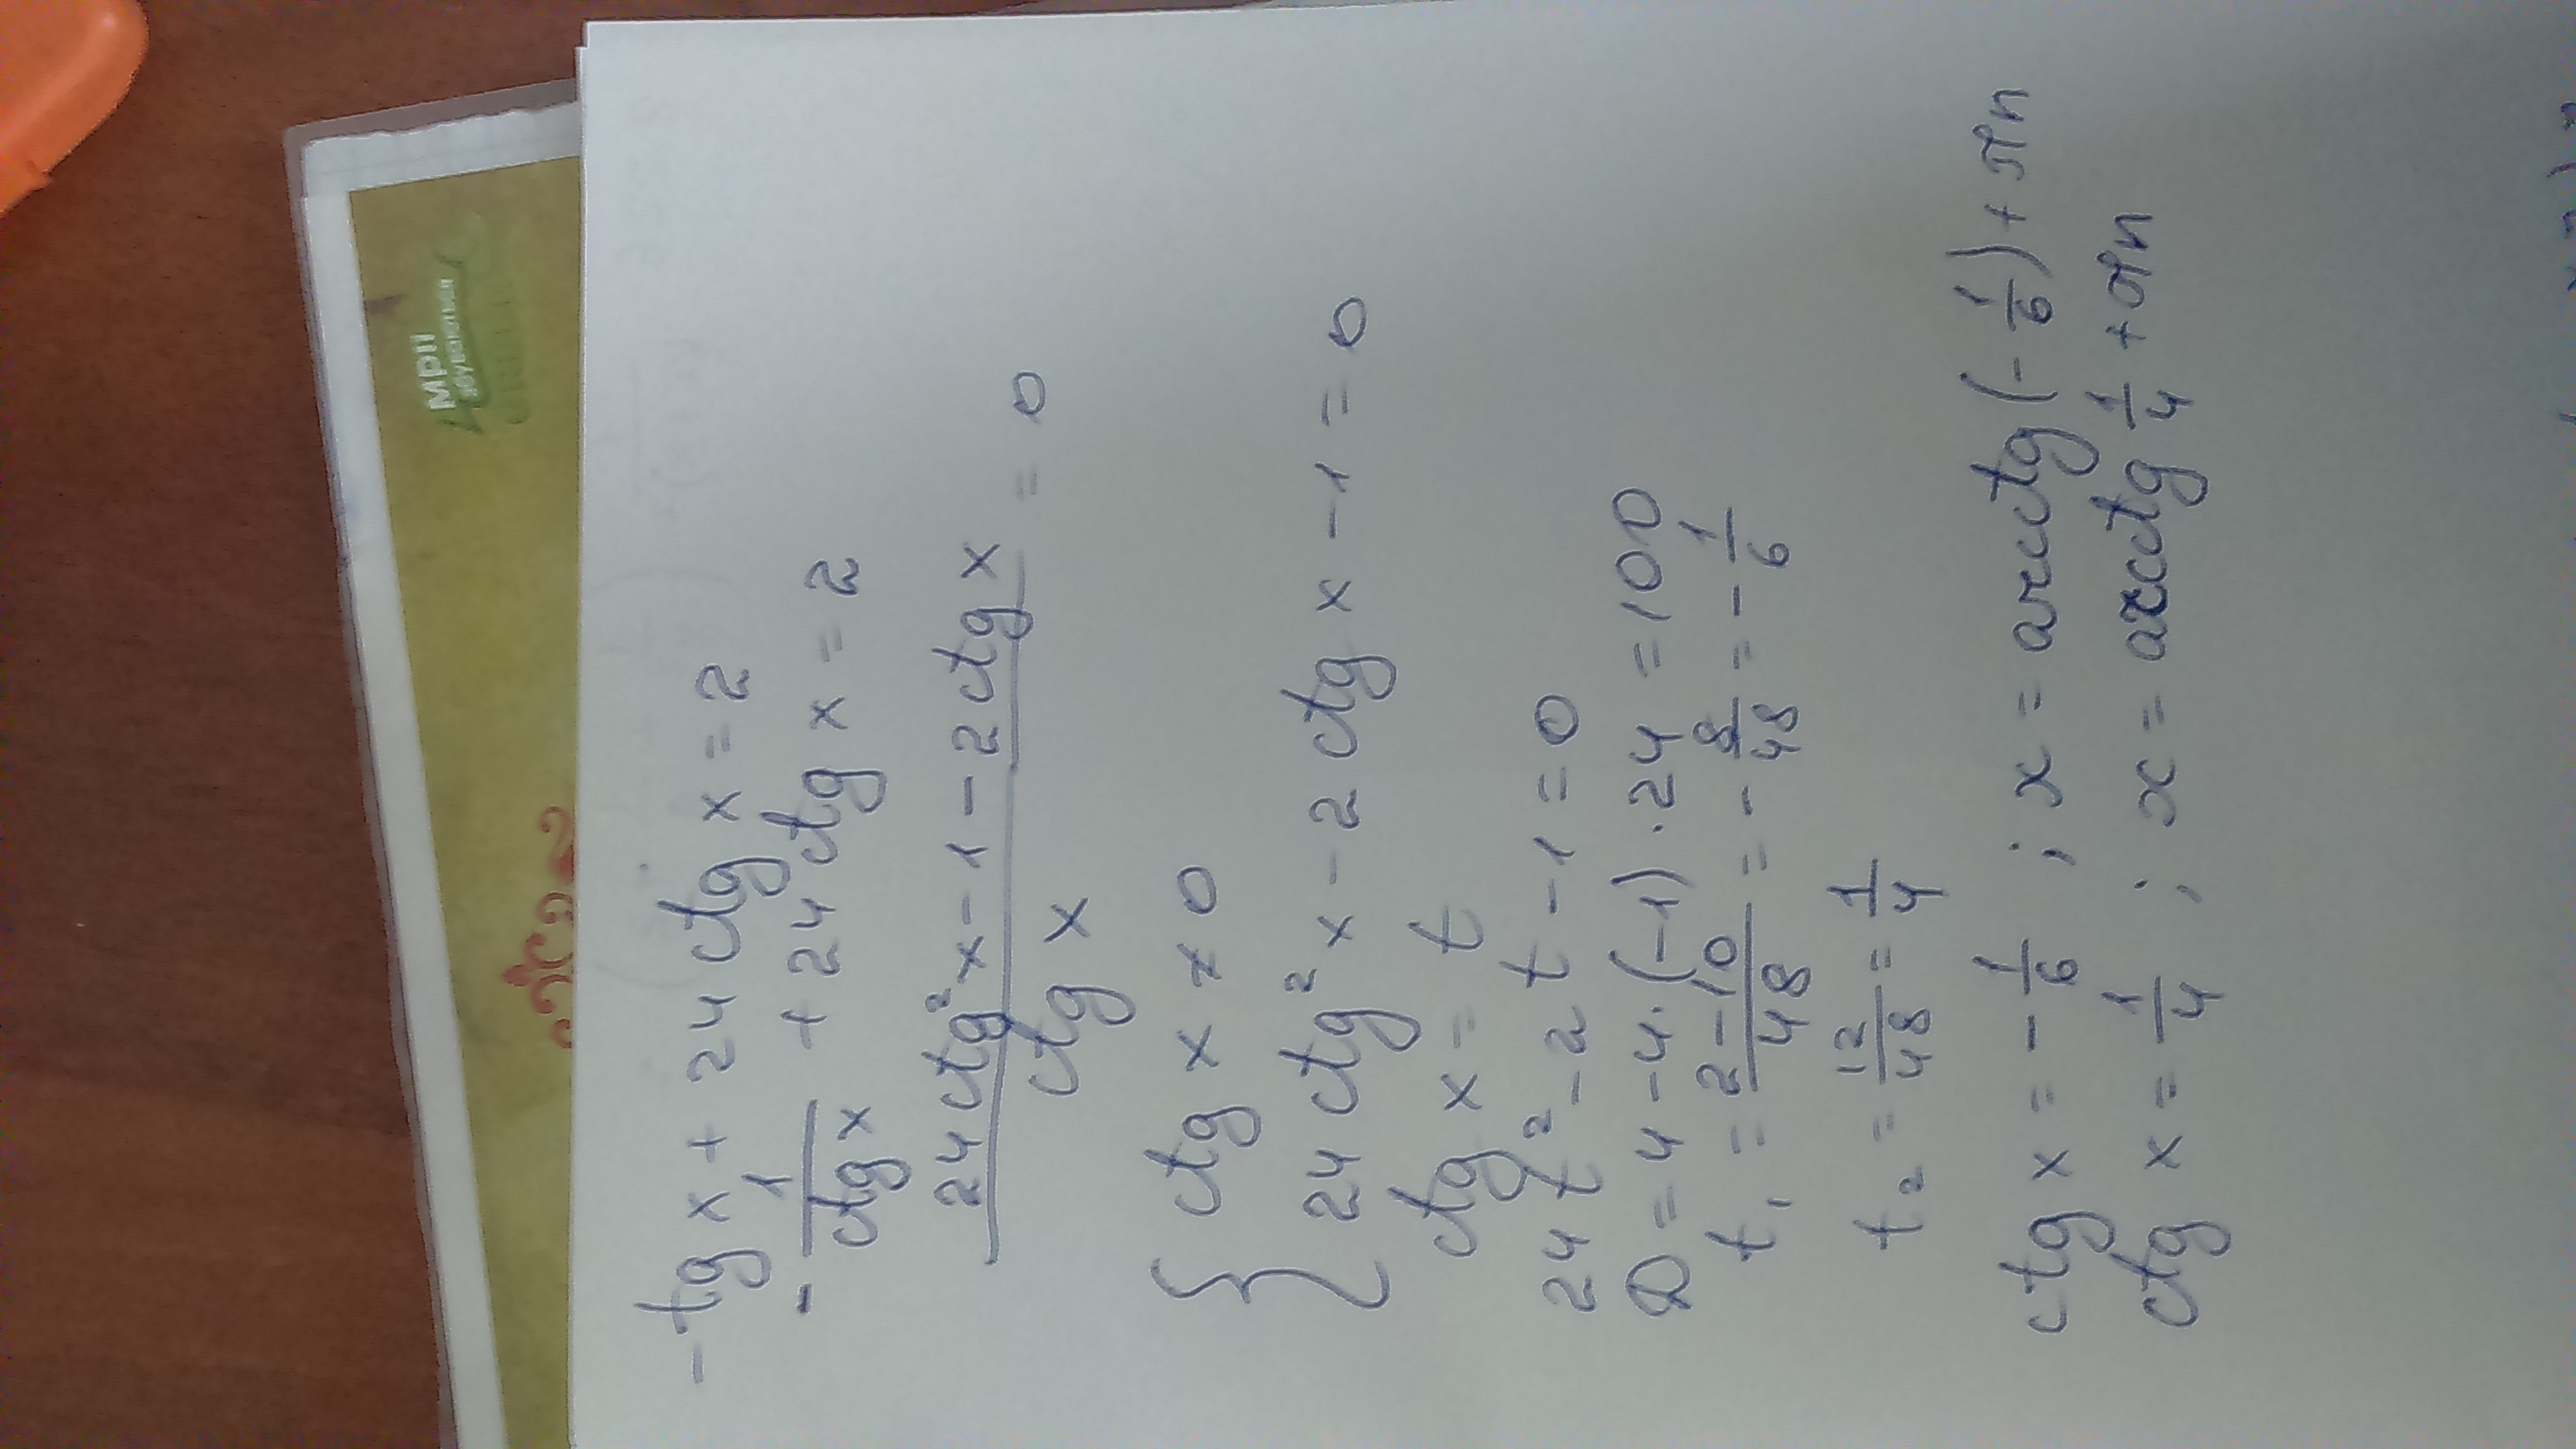 - tg x + 24 ctg x = 2
- 1/ctg x + 24 ctg x = 2
24 ctg² x - 1 - 2 ctg x / ctg x = 0
{ ctg x ≠ 0
24 ctg² x - 2 ctg x - 1 = 0
ctg x = t
24 t² - 2 t - 1 = 0
D = 4 - 4 · (-1) · 24 = 100
t₁ = 2 - 10 / 48 = - 8/48 = - 1/6
t₂ = 12/48 = 1/4
ctg x = - 1/6 ; x = arcctg (- 1/6) + πn
ctg x = 1/4 ; x = arcctg 1/4 + πn